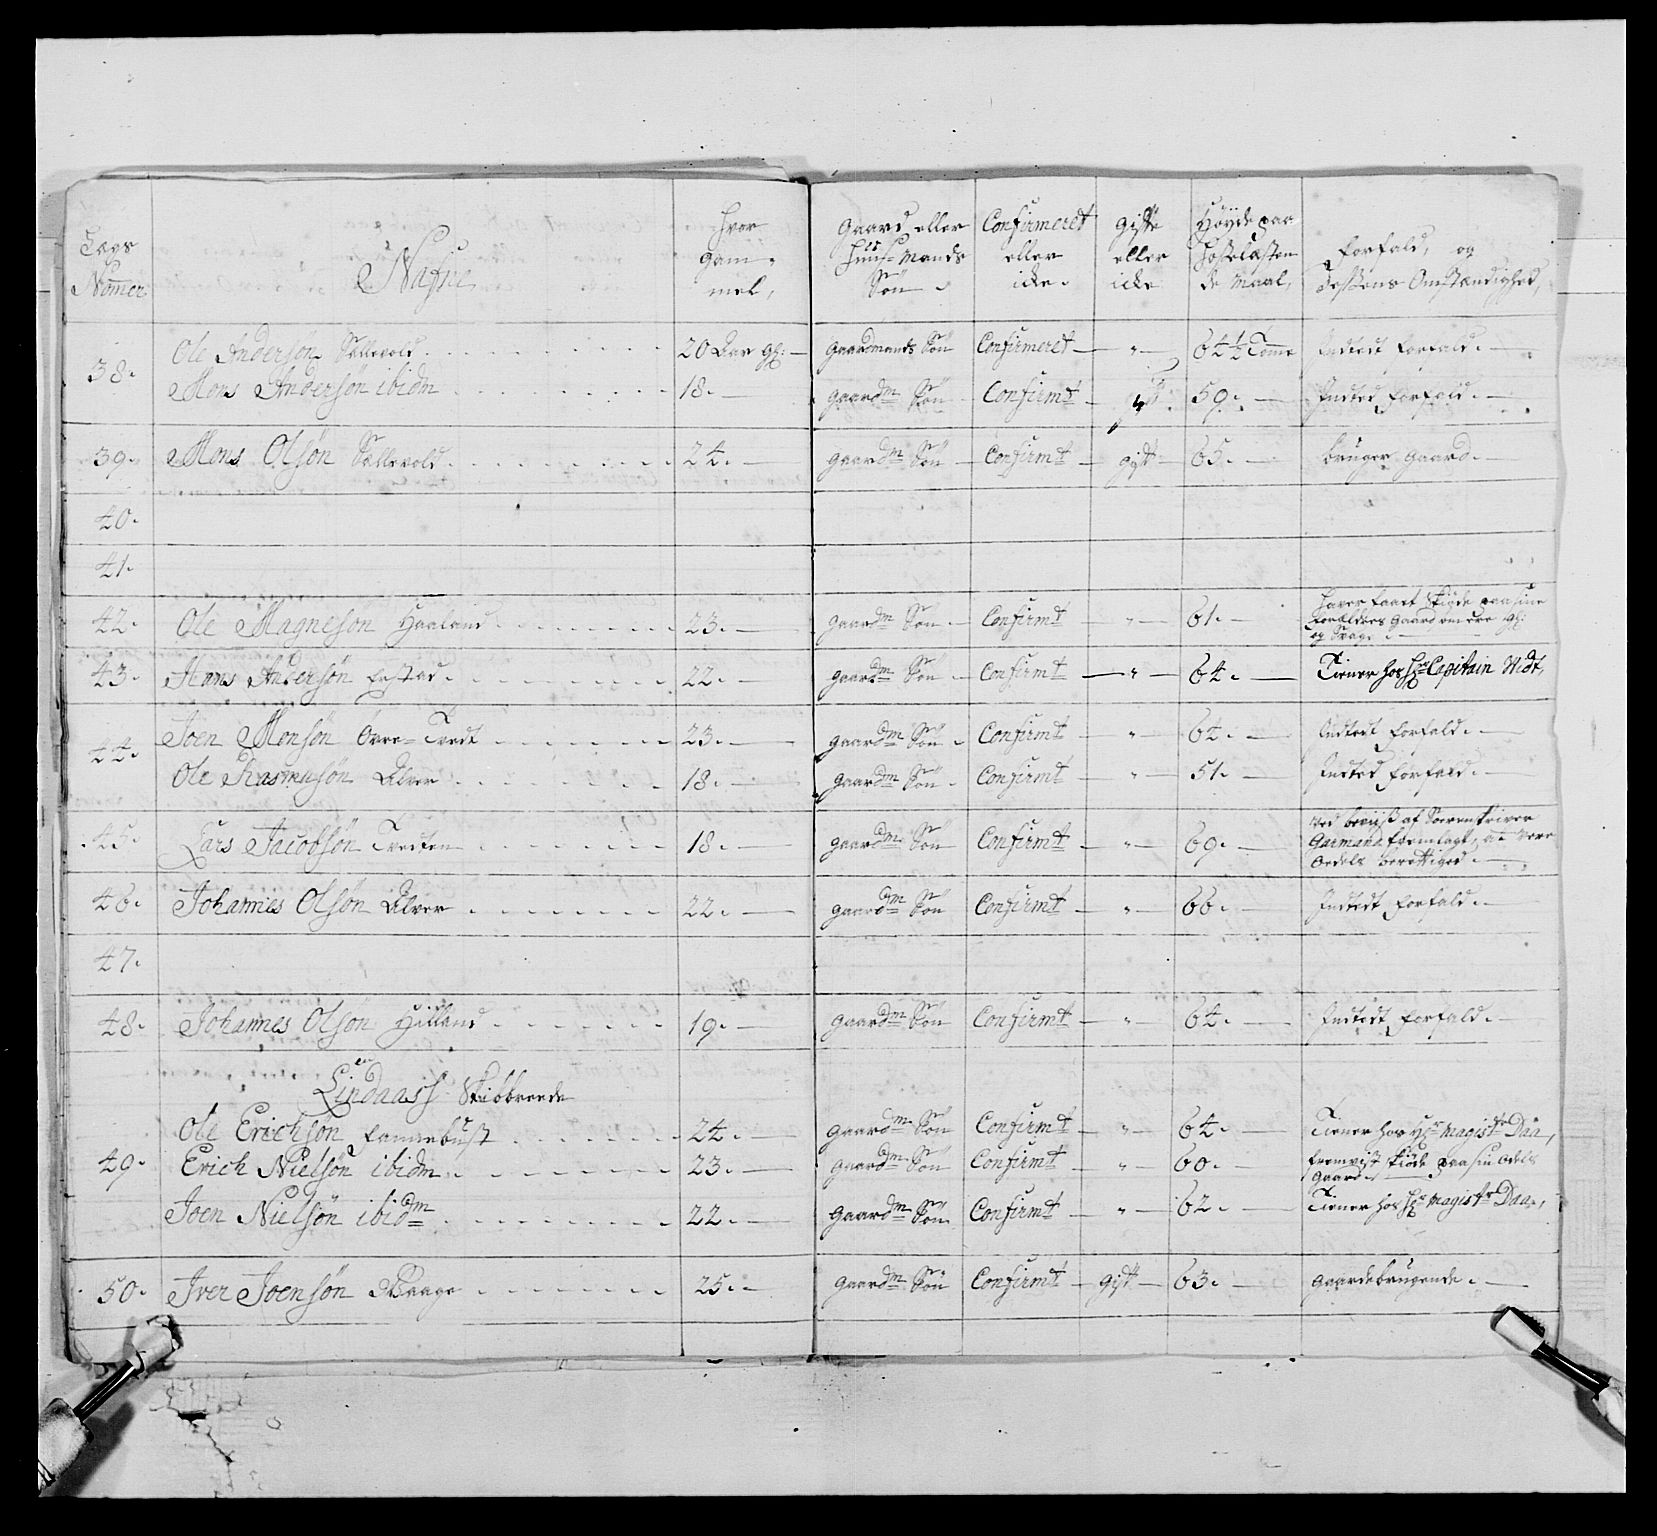 Lægs Nomer | Nafne | hvor gam- mel, | Gaard eller Huus-Mands Søn | Confirmeret eller icke. | gifte eller icke | Høyde paa de Maal, | Forfald, og Omstændighed,
38. | Ole Andersøn Sellevold | 20 Aar gl: | Gaardmands Søn | Confirmeret | " | 64 1/2 Tomme | Indtedt Forfald.
Mons Andersøn ibidm | 18. | gaardm Søn | Confirmt | 59. | Indted Forfald.
39. | Mons Olsøn Sellevold | 24. | gaardm Søn | Confirmt | gift | 65. | bruger Gaard.
40.
41.
42. | Ole Magnesøn Haaland | 23. | gaardm Søn | Confirmt | " | 61. | haver faaet Skiøde paa sine Forældres Gaard som ere gl: og Svage
43. | Hans Andersøn Festad | 22. | gaardm Søn | Confirmt | " | 64. | Tiener hos Hr Capitain Widt,
44. | Joen Monsøn Øvre-Tvedt | 23. | gaardm Søn | Confirmt | " | 64. | Indtedt Forfald.
Ole Rasmusøn Alver | 18. | gaardm Søn | Confirmt | " | 51. | Indted Forfald.
45. | Lars Jacobsøn Tvedten | 18. | gaardm Søn | Confirmt | " | 69. | Ved beviiß af Sorenskriver Garmand fremlagt, at være Odels berettiged.
46. | Johannes Olsøn Alver | 22. | gaardm Søn | Confirmt | " | 66. | Indtedt Forfald.
47.
48. | Johannes Olsøn Hilland | 19. | gaardm Søn | Confirmt | " | 64. | Indtedt Forfald.
Lindaass Skibbreede
Ole Erichsøn Fammebust | 24. | Gaardm Søn | Confirmt | " | 64. | Tiener hos Hr Magistr Daa,
49. | Erich Nielsøn ibidm | 23. | gaardm Søn | Confirmt | " | 60. | fremvist skiøde paa sin Odels Gaard
Joen Nielsøn ibidm | 22. | Gaardm Søn | Confirmt | " | 62. | Tiener hos Hr Magistr Daa,
50. | Iver Joensøn Waage | 25. | gaardm Søn | Confirmt | gift | 63. | gaardebrugende.